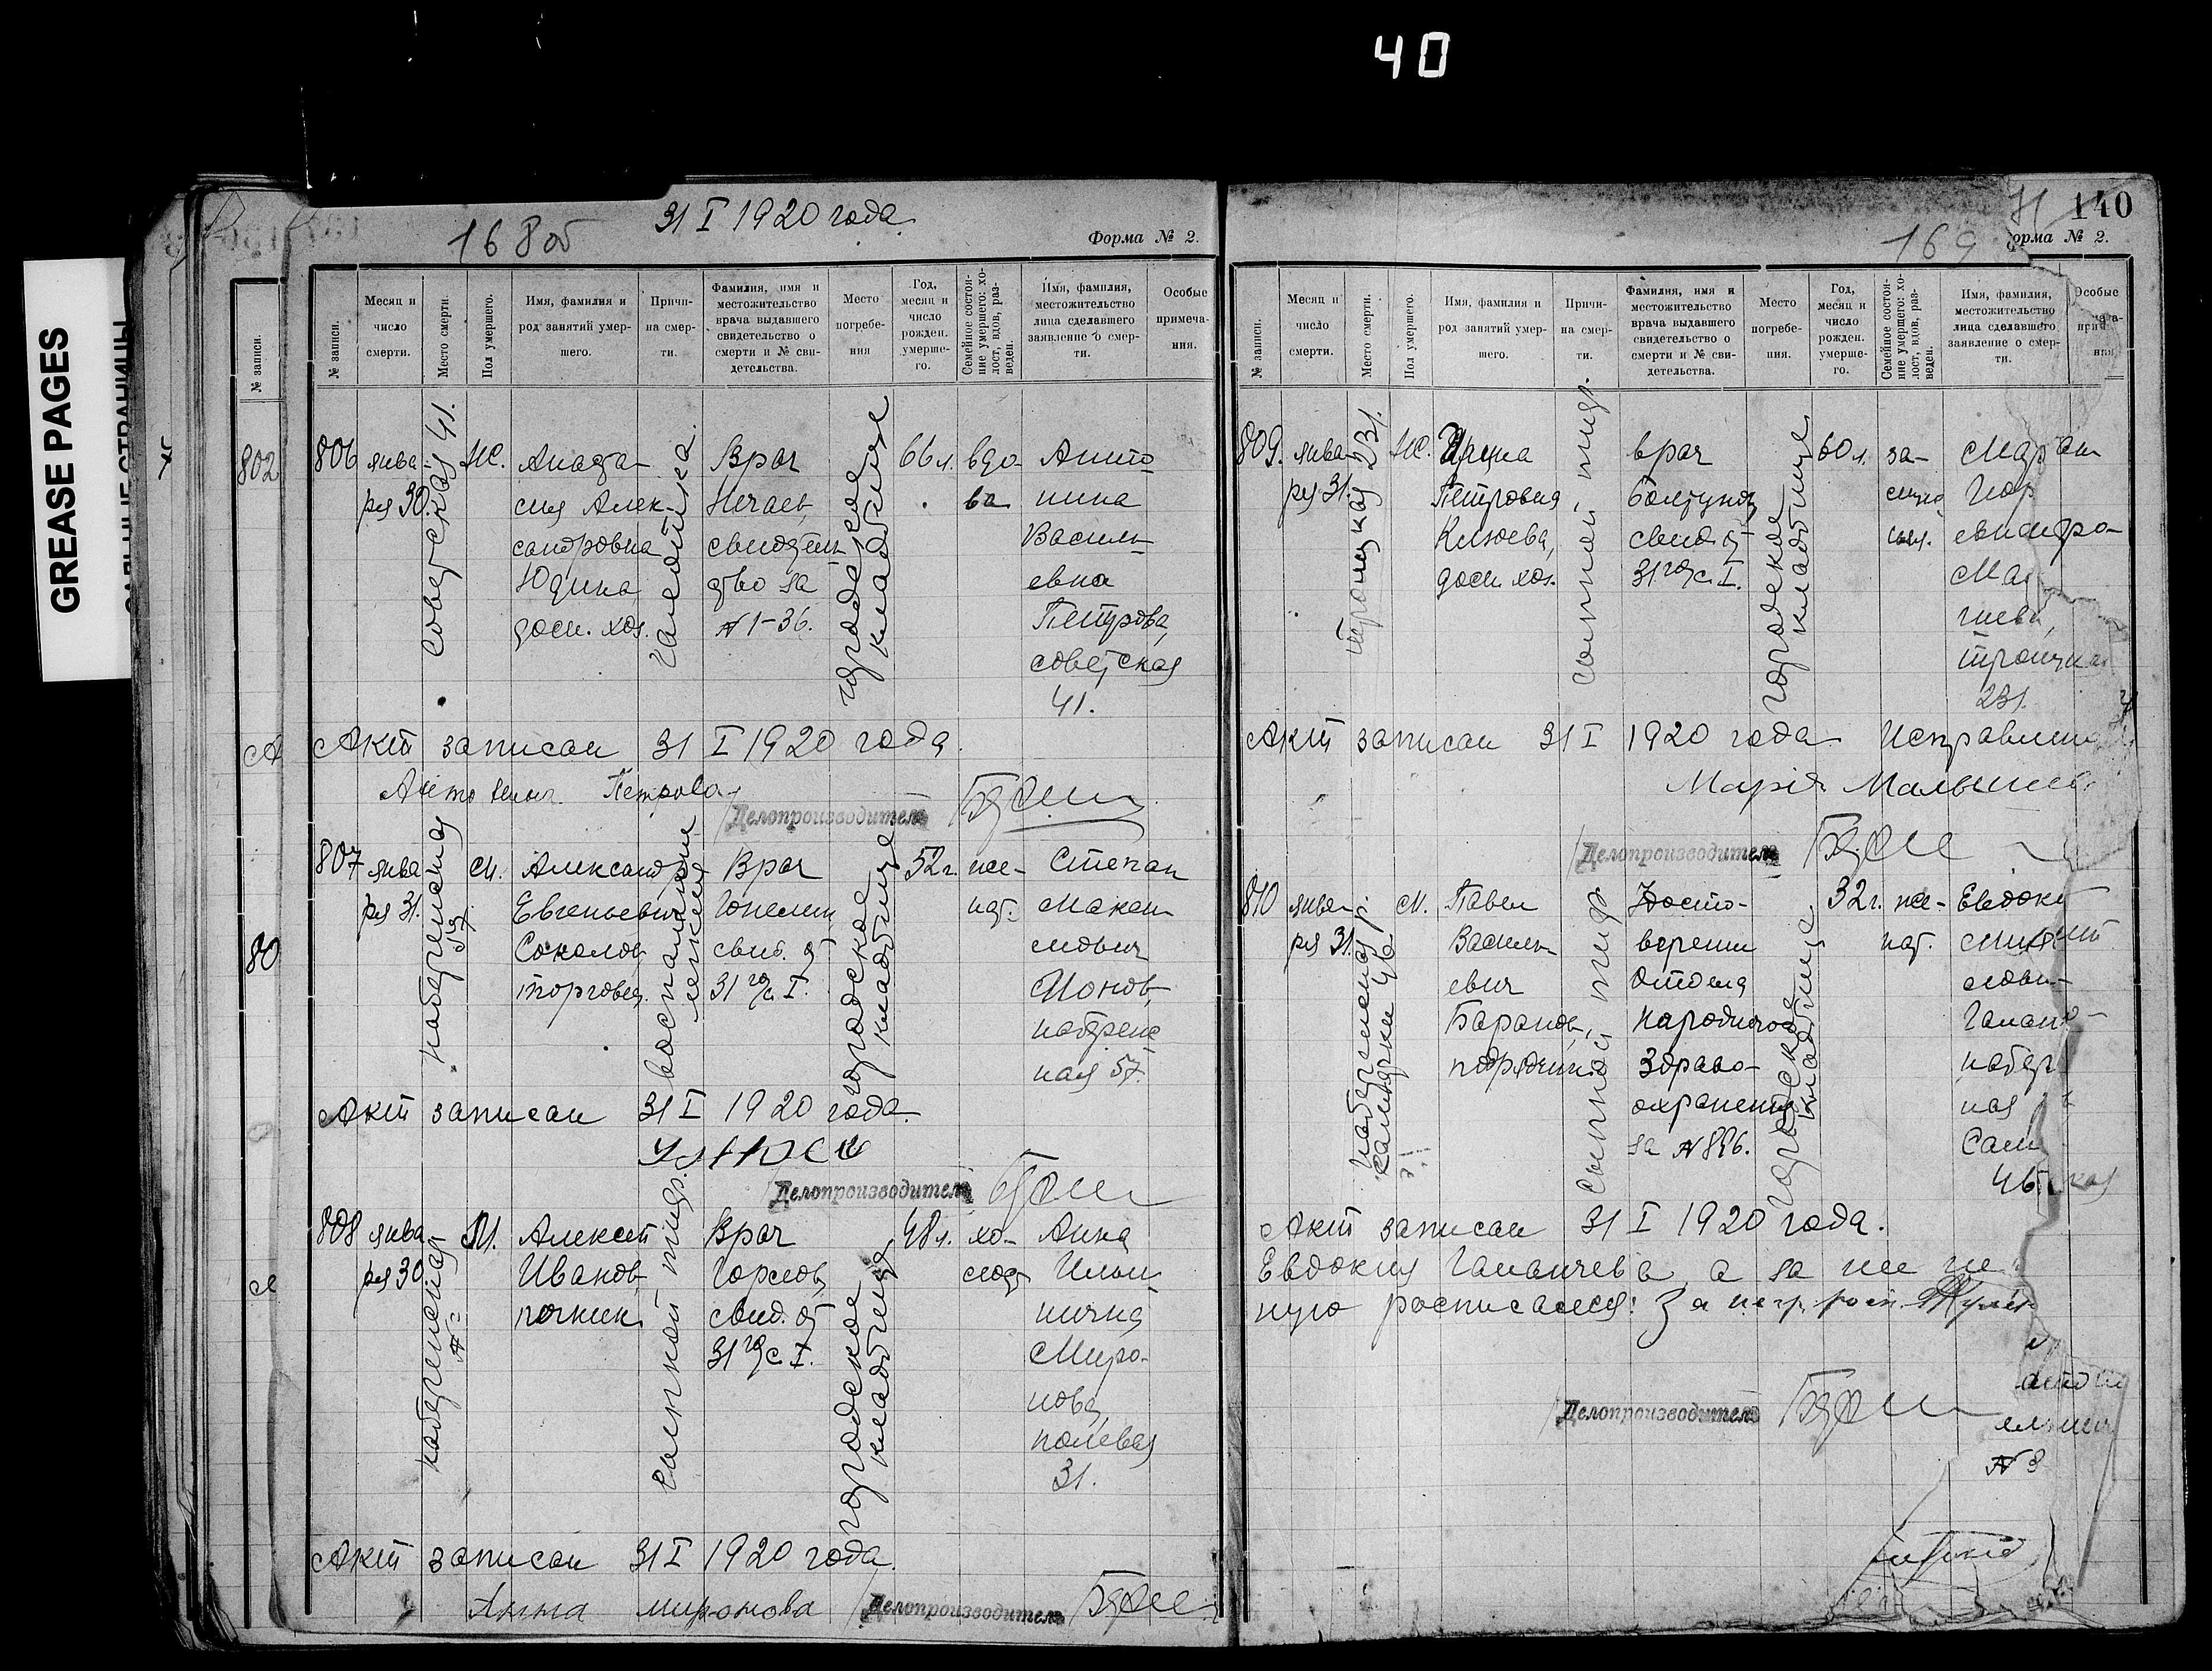 40
GREASE PAGES
31 I 1920 года
168об
Форма № 2.
№ записи.
Месяц и число смерти.
Место смерти.
Пол умершего.
Имя, фамилия и род занятий умершего.
Причина смерти.
Фамилия, имя и местожительство врача выдавшего свидетельство о смерти и № свидетельства.
Место погребения
Год, месяц и число рожден. умершего.
Семейное состояние умершего: холост, вдов, разведен.
Имя, фамилия, местожительство лица сделавшего заявление о смерти.
Особые примечания.
№ записи.
802
806
янва-
ря 30.
советская 41.
Ж.
Анаста-
сия Алек-
сандровна
Юдина
дом. хоз.
Врач
Нечаев,
свидетель
ство за
№ 1-36.
городское
кладбище
66 л.
вдо-
ва
Анто
нина
Василь-
евна
Петрова,
советская
41.
Акт записан 31 I 1920 года.
Петрова
Делопроизводитель
807
янва
ря 31.
набережная
57.
М.
Александр
Евгеньевич
Соколов
торговец.
воспаление
легких
Врач
свид. от
31го/с I.
городское
кладбище
52 г.
же-
нат.
Степан
Ионов,
набереж
ная 57.
Акт записан 31 I 1920 года.
Делопроизводитель
80
808
янва
ря 30
набережная
М.
Алексей
Иванов,
сыпной тиф.
Врач
свид. от
31го/с I.
городское
кладбище
48 л.
хо-
лост
Анна
Ильи
нична
Миро-
нова,
полевая
31.
Акт записан 31 I 1920 года.
Анна миронова
Делопроизводитель
140
169
орма № 2.
№ записи.
Месяц и число смерти.
Место смерти.
Пол умершего.
Имя, фамилия и род занятий умершего.
Причина смерти.
Фамилия, имя и местожительство врача выдавшего свидетельство о смерти и № свидетельства.
Место погребения.
Год, месяц и число рожден. умершего.
Семейное состояние умершего: холост, вдов, разведен.
Имя, фамилия, местожительство лица сделавшего заявление о смерти.
Особые
809.
янва-
ря 31.
троицкая 231.
Ж.
Петровна
Князева,
дом. хоз.
сыпной тиф.
врач
свид. от
31го/с I.
городское
кладбище
60 л.
за-
троицка
231.
Акт записан 31 I 1920 года.
Марія
Делопроизводитель
810
янва-
ря 31.
набережная р.
Самарки 46.
М.
Павел
Василь-
евич
Баранов,
сыпной тиф
Удосто-
верение
Отдела
народного
Здраво-
охранения
за № 896.
городское
кладбище
32 г.
же-
нат.
Евдоки
набер
ная
Сам
46.
Акт записан 31 I 1920 года.
Евдокия а за нее не
ную расписался: За негр. росп.
Делопроизводитель
№ 3